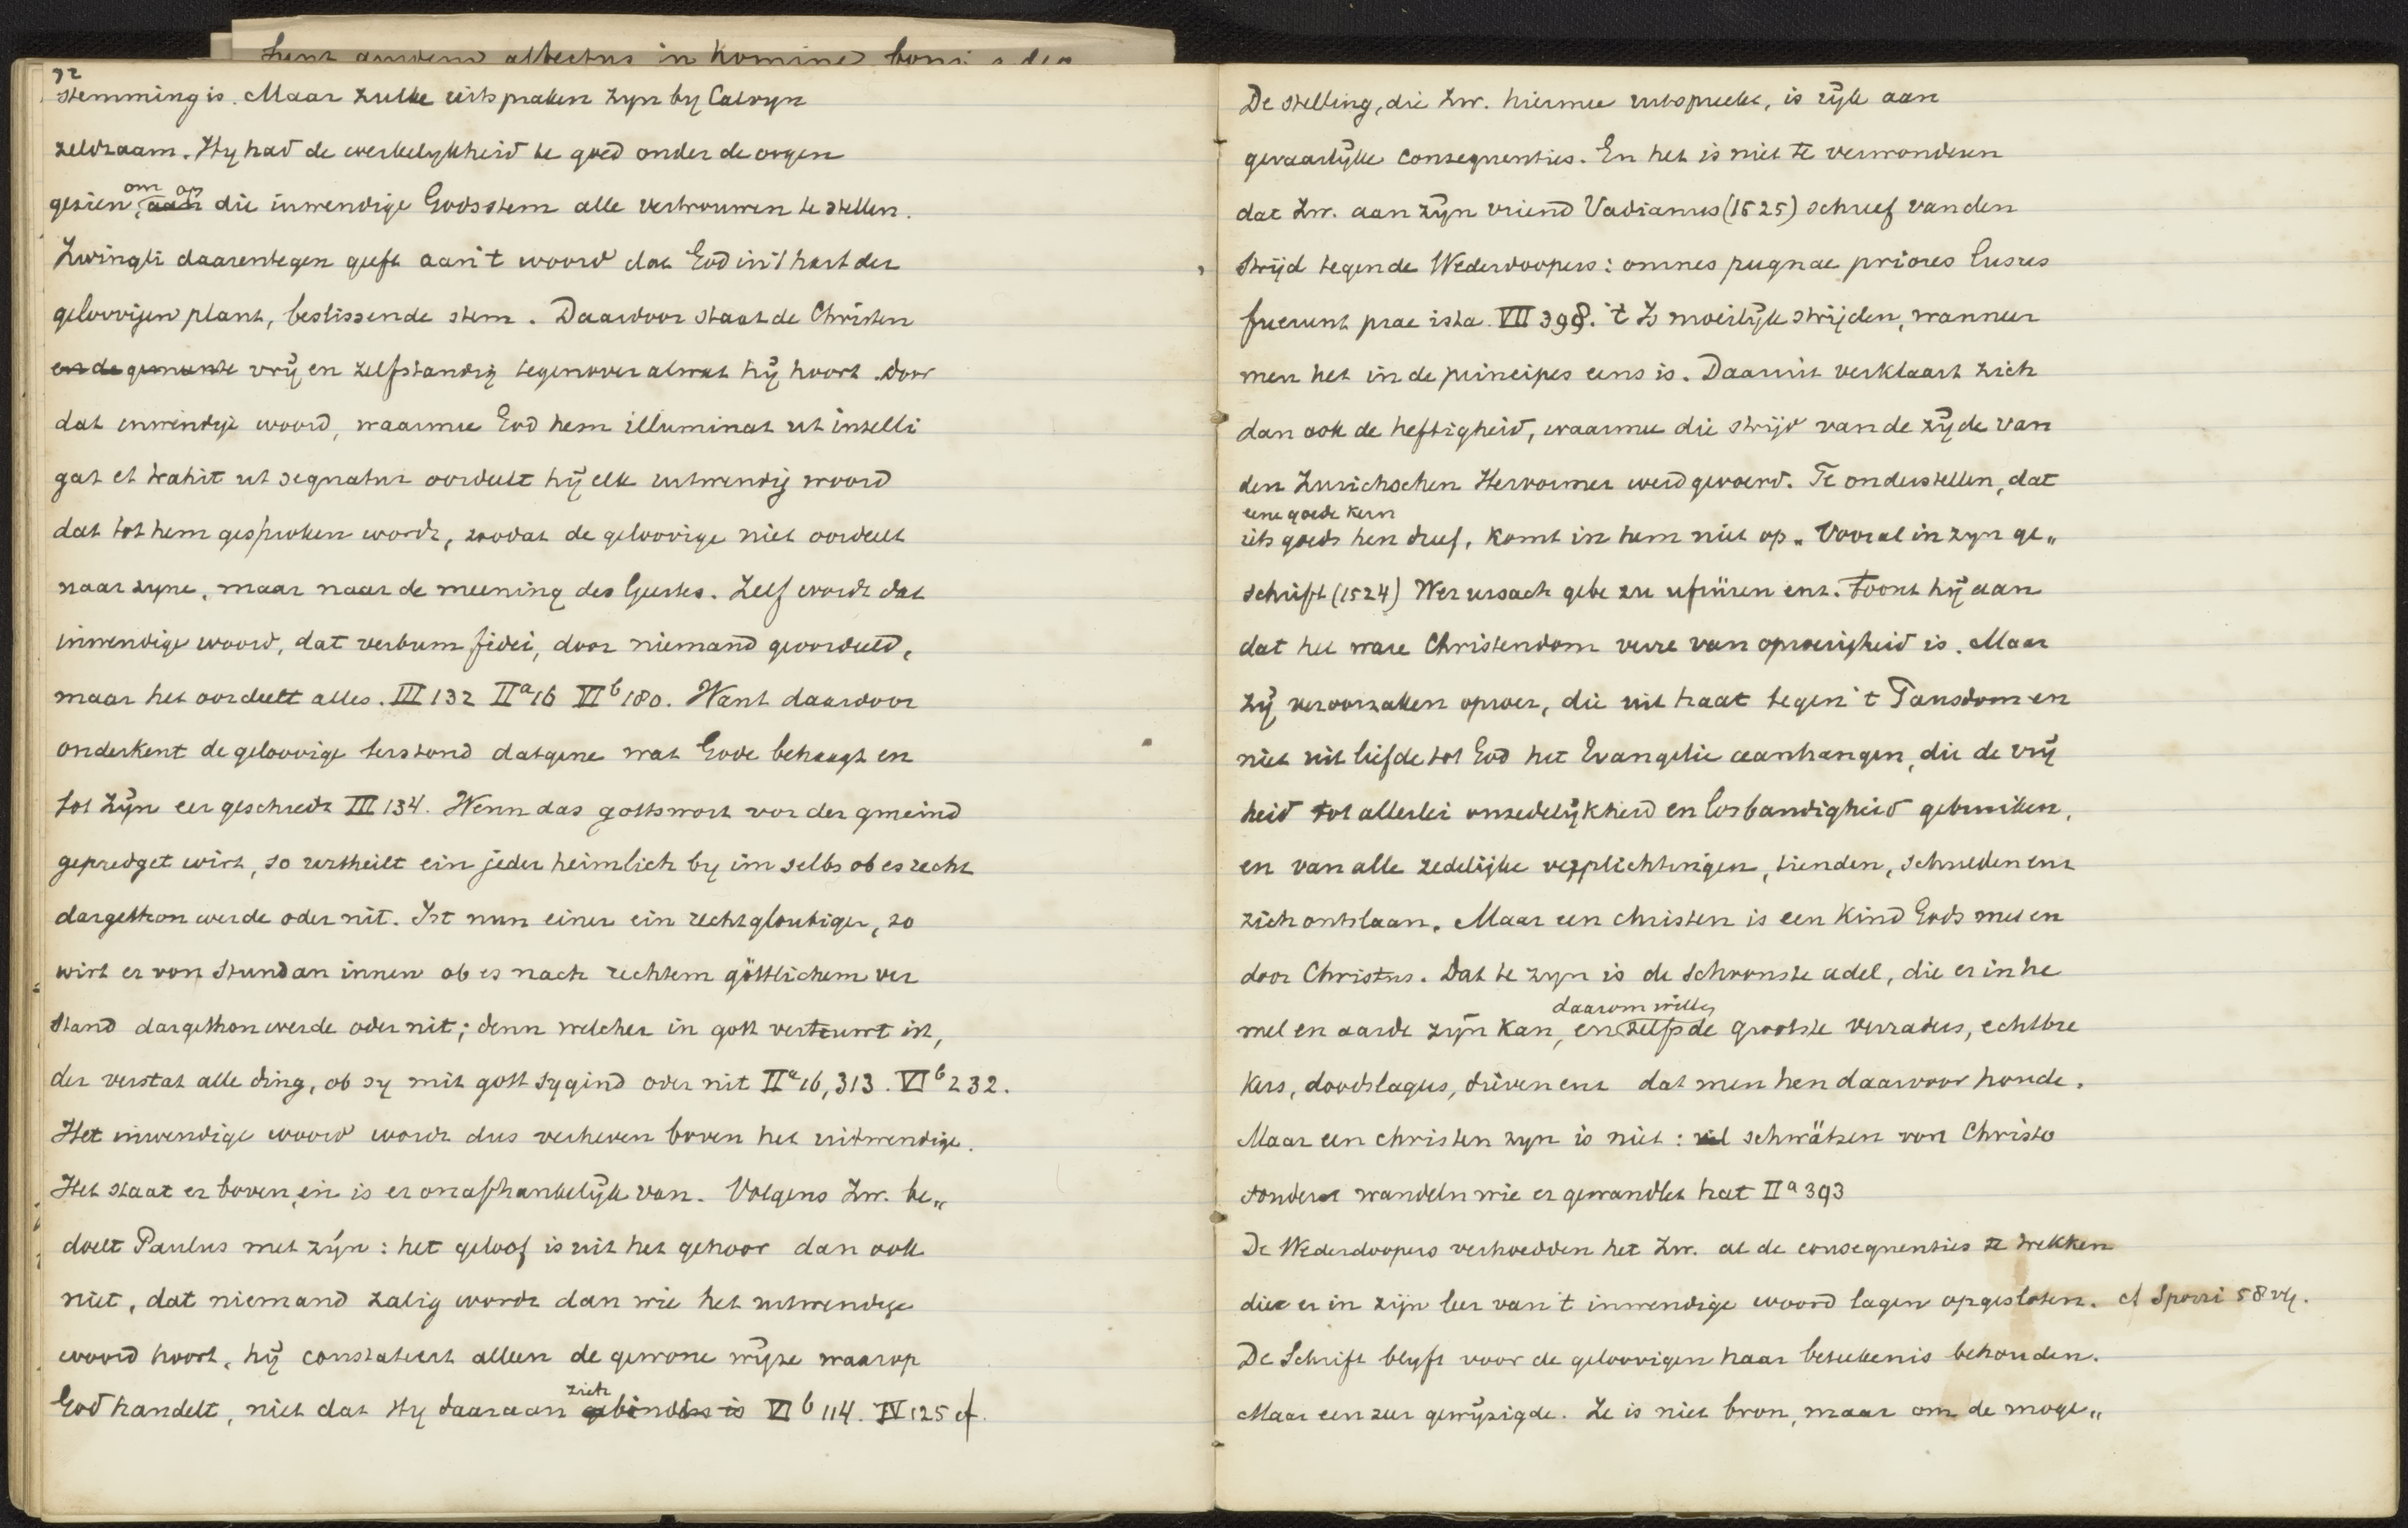 72
stemming is. Maar zulke uitspraken zyn by Calvyn
zeldzaam. Hy had de werkelykheid te goed onder de oogen
gezien, om op aan die inwendige Godsstem alle vertrouwen te stellen.
Zwingli daarentegen geeft aan 't woord dat God in 't hart der
geloovigen plant, beslissende stem. Daardoor staat de Christen
en de gemeente vrij en zelfstandig tegenover alwat hij hoort. Door
dat inwendige woord, waarmee God hem illuminat ut intelli
gat et trahit ut sequatur oordeelt hij elk uitwendig woord
dat tot hem gesproken wordt, zoodat de geloovige niet oordeelt
naar zyne, maar naar de meening des Geestes. Zelf wordt dat
inwendige woord, dat verbum fidei, door niemand geoordeeld,
maar het oordeelt alles. III 132 IIa 16 VIb 180. Want daardoor
onderkent de geloovige terstond datgene wat Gode behaagt en
tot zijn eer geschiedt III 134. Wenn das gottswort vor der gmeind
gepredget wirt, so urtheilt ein jeder heimlich by im selbs ob es recht
dargethon werde oder nit. Ist nun einer ein rechtgloubiger, so
wirt er von Stund an innen ob es nach rechtem göttlichem ver
stand dargethon werde oder nit; denn welcher in gott vertruwt ist,
der verstat alle ding, ob sy mit gott sygind oder nit IIa 16, 313. VIb 232.
Het inwendige woord wordt dus verheven boven het uitwendige.
Het staat er boven, en is er onafhankelijk van. Volgens Zw. be„
doelt Paulus met zijn: het geloof is uit het gehoor dan ook
niet, dat niemand zalig wordt dan wie het uitwendige
woord hoort, hij constateert alleen de gewone wijze waarop
God handelt, niet dat Hy daaraan zich gebonden is VIb 114. IV 125 cf.
De stelling, die Zw. hiermee uitspreekt, is rijk aan
gevaarlijke consequenties. En het is niet te verwonderen
dat Zw. aan zijn vriend Vadianus (1525) schreef van den
strijd tegen de Wederdoopers: omnes pugnae priores lusus
fuerunt prae ista. VII 398. 't Is moeilijk strijden, wanneer
men het in de principes eens is. Daaruit verklaart zich
dan ook de heftigheid, waarmee die strijd van de zijde van
den Zurichschen Hervormer werd gevoerd. Te onderstellen, dat
eene goede kern
iets goeds hen dreef, komt in hem niet op. Vooral in zyn ge„
schrift (1524) Wer ursach gebe zu ufrüren enz. toont hij aan
dat het ware Christendom verre van oproerigheid is. Maar
zij veroorzaken oproer, die uit haat tegen 't Pausdom en
niet uit liefde tot God het Evangelie aanhangen, die de vrij
heid tot allerlei onzedelijkheid en losbandigheid gebruiken,
en van alle zedelijke verplichtingen, tienden, schulden enz
zich ontslaan. Maar een christen is een kind Gods met en
door Christus. Dat te zyn is de schoonste adel, die er in he
daarom willen
mel en aarde zijn kan, en zelfs de grootste verraders, echtbre
kers, doodslagers, dieven enz dat men hen daarvoor houde.
Maar een christen zyn is niet: vil schwätzen von Christo
sonder wandeln wie er gewandlet hat IIa 393
De Wederdoopers verhoedden het Zw. al de consequenties te trekken
die er in zijn leer van 't inwendige woord lagen opgesloten. cf Spörri 58 vlg.
De Schrift blyft voor de geloovigen haar beteekenis behouden.
Maar een zeer gewijzigde. Ze is niet bron, maar om de moge„